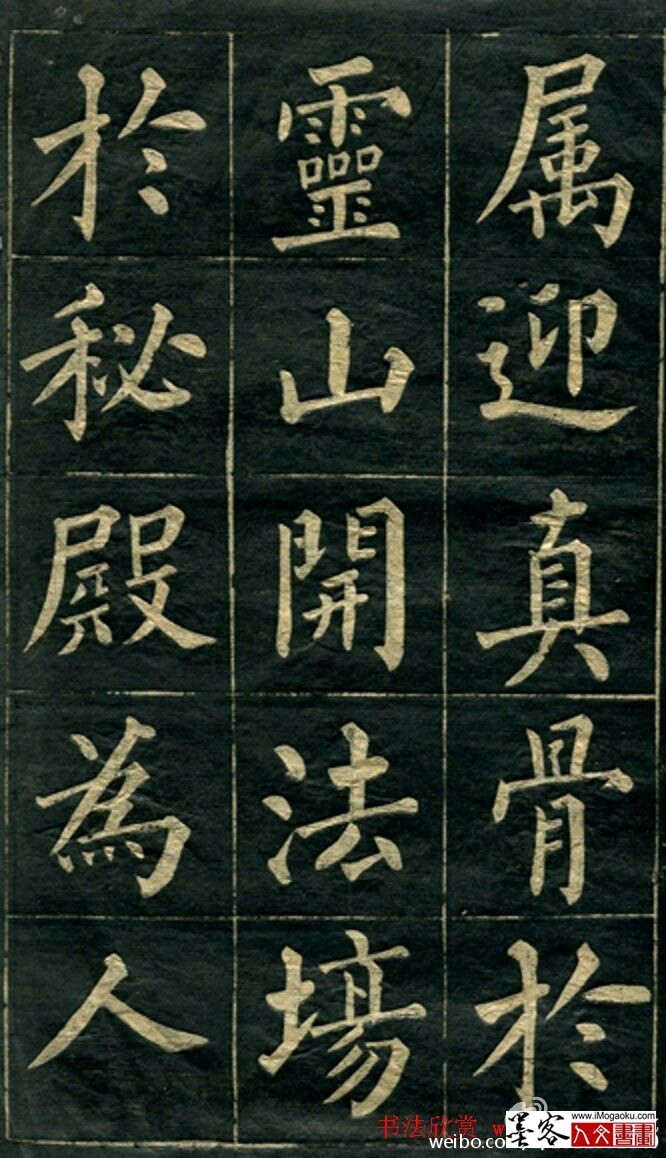 属迎真骨於
靈山開法場
於秘殿為人
书法欣赏 w
weibo.co
墨客
www.iMogaoku.com
人文書畫